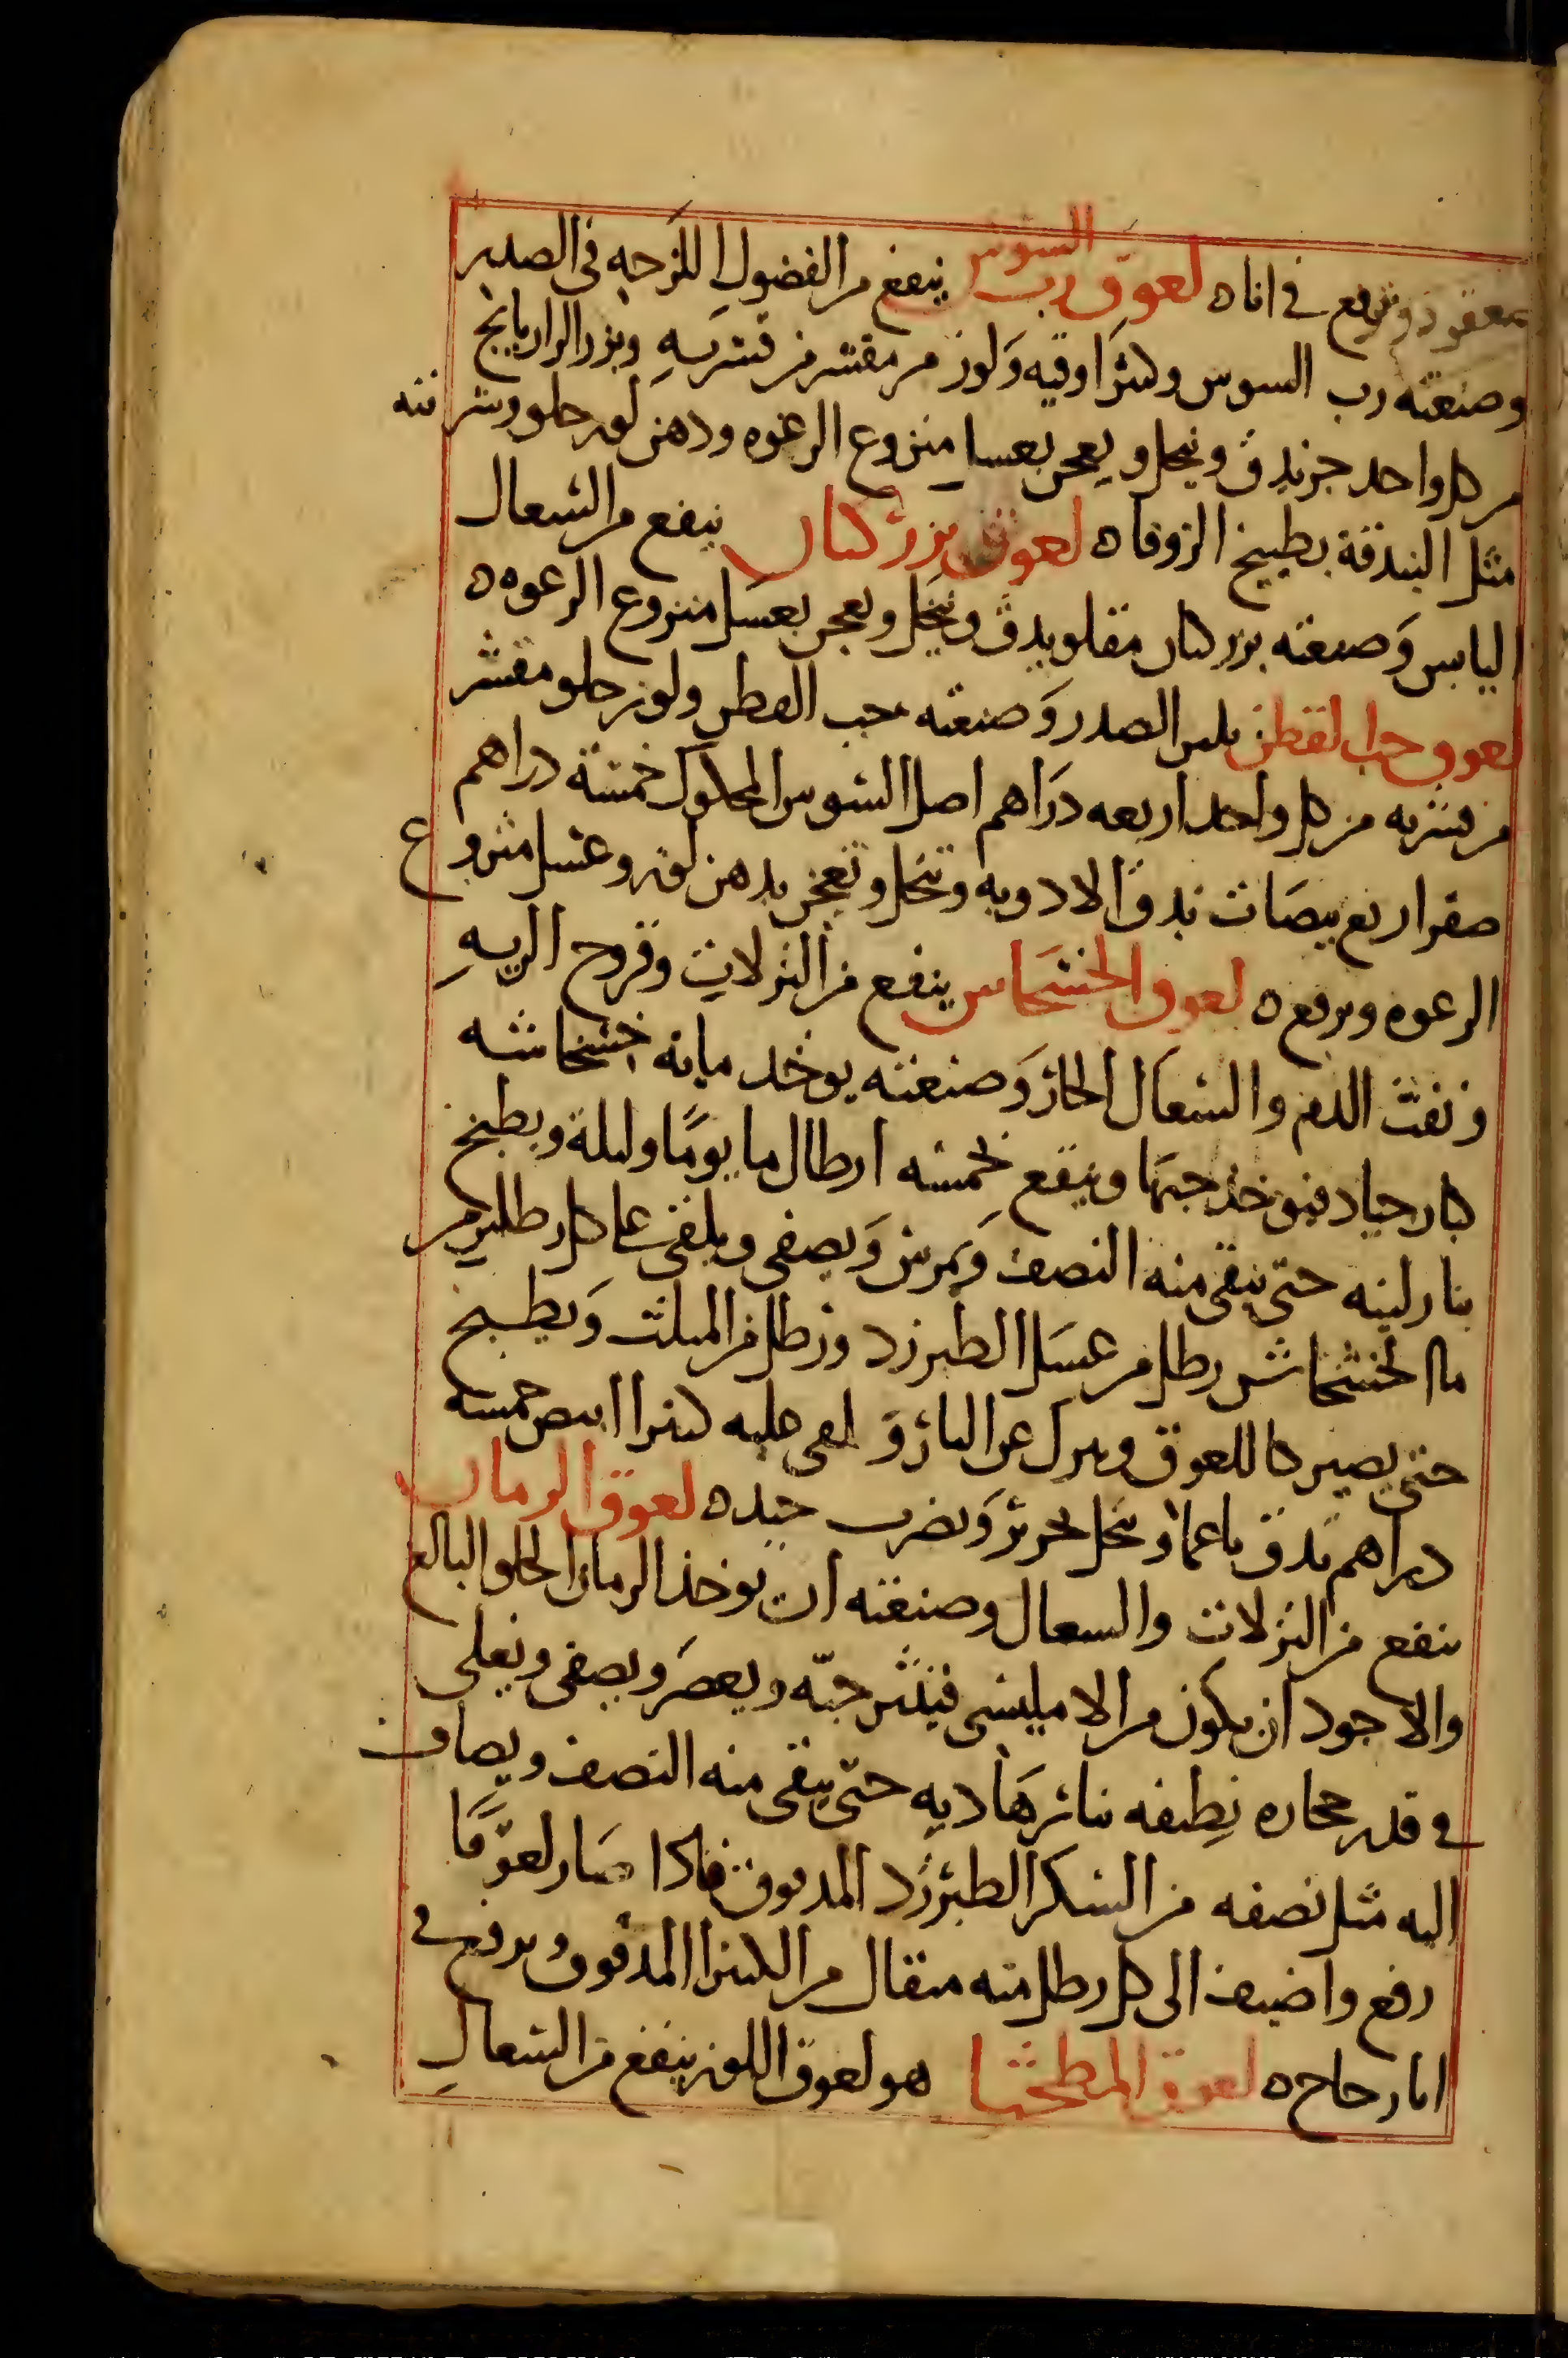 معقود وترفع في اناه لعوق رب السوس ينفع من الفضول اللزجه في الصدر
وصنعته رب السوس وكثرا اوقيه ولوز مر مقشر من قشريه وبزر الرازيانج
من كل واحد جز يدق وينخل ويعجن بعسل منزوع الرغوه ودهن لوز حلو وشربته
مثل البندقة بطبيخ الزوفا ه لعوق بزر كتان ينفع من السعال
اليابس وصنعته بزر كتان مقلو يدق وينخل ويعجن بعسل منزوع الرغوه ه
لعوق حب القطن يلين الصدر وصنعته حب القطن ولوز حلو مقشر
من قشريه من كل واحد اربعه دراهم اصل السوس المحكوك خمسة دراهم
صفر اربع بيضات تدق الادويه وتنخل وتعجن بدهن لوز وعسل منزوع
الرغوه ويرفع ه لعوق الخشخاش ينفع من النزلات وقروح الريه
ونفث الدم والسعال الحار وصنعته يوخد مايه خشخاشه
كبار جياد فيوخذ حبها وينقع بخمسه ارطال ما يوما وليلة ويطبخ
بنار لينه حتى يبقى منه النصف ويمرس ويصفى ويلقى على كل رطلين من
ما الخشخاش رطل من عسل الطبرزد ورطل من المثلث ويطبخ
حتى يصير كاللعوق وينزل عن النار ويلقى عليه كثيرا ابيض خمسه
دراهم تدق ناعما وتنخل بحرير ويضرب جيد ه لعوق الرمان
ينفع من النزلات والسعال وصنعته ان يوخذ الرمان الحلو البالغ
والاجود ان يكون من الامليسي فينثر حبه ويعصر ويصفى ويغلى
في قدر حجاره نظيفه بنار هاديه حتى يبقى منه النصف ويضاف
اليه مثل نصفه من السكر الطبرزد المدقوق فاذا صار لعوقا
رفع واضيف الى كل رطل منه مثقال من الكثيرا المدقوق ويرفع في
انا زجاج ه لعوق هو لعوق اللوز ينفع من السعال